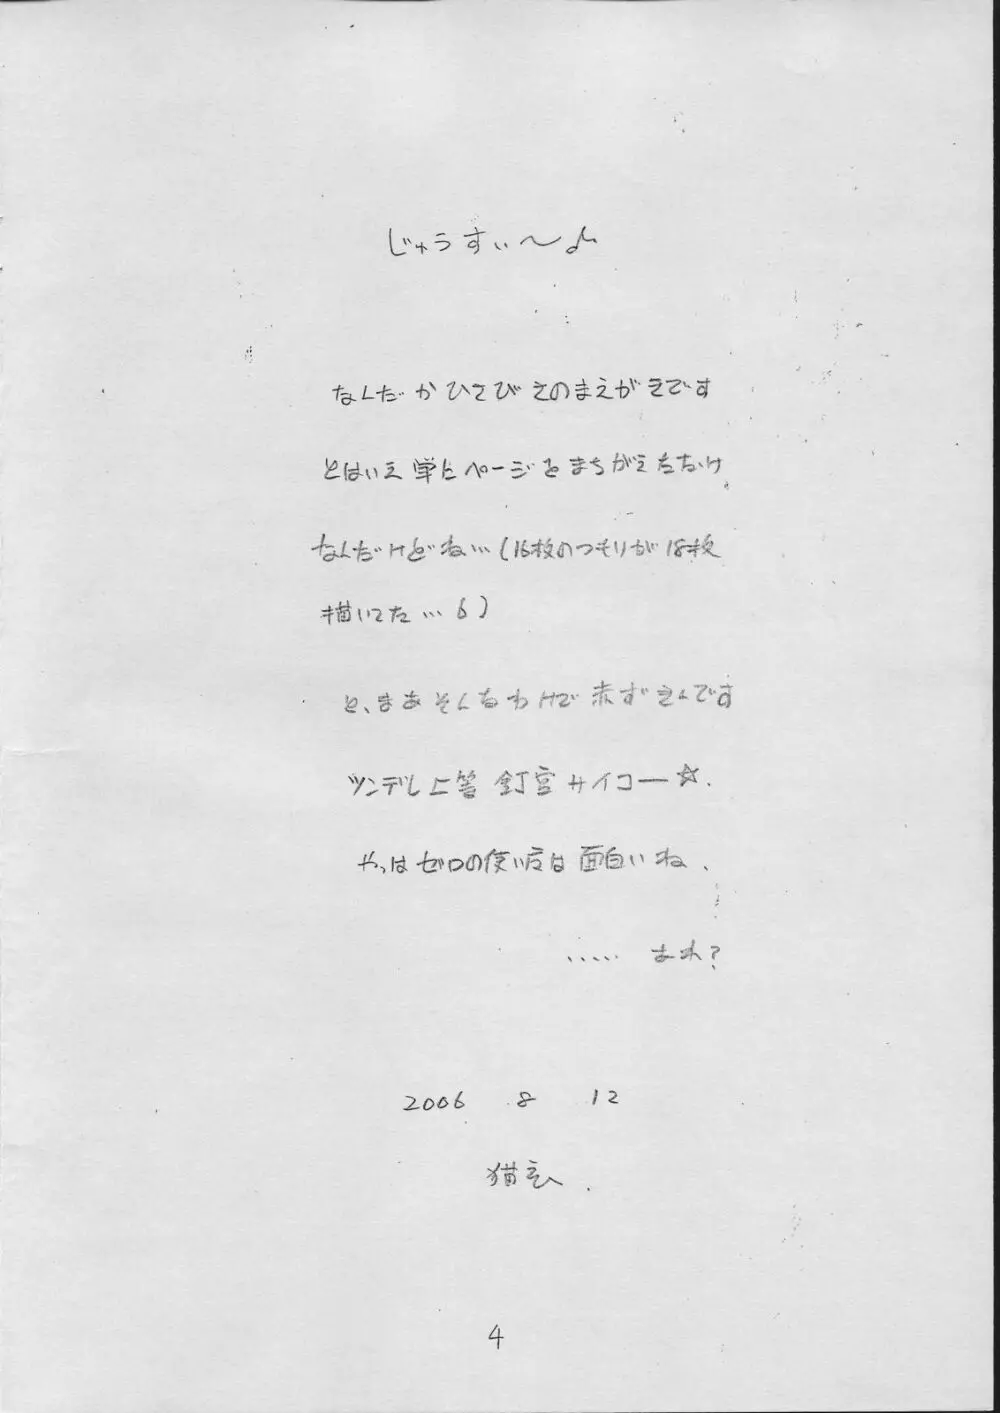 じゅうすぃ～♪
なんだかひさびさのまえがきです
とはいえ単にページをまちがえただけ
なんだけどね…（16枚のつもりが18枚
描いてた…6）
と、まあそんなわけで赤ずきんです
ツンデレ上等 釘宮サイコー☆.
やっぱゼロの使い魔は面白いね.
..... あれ?
2006 8 12
猫
4